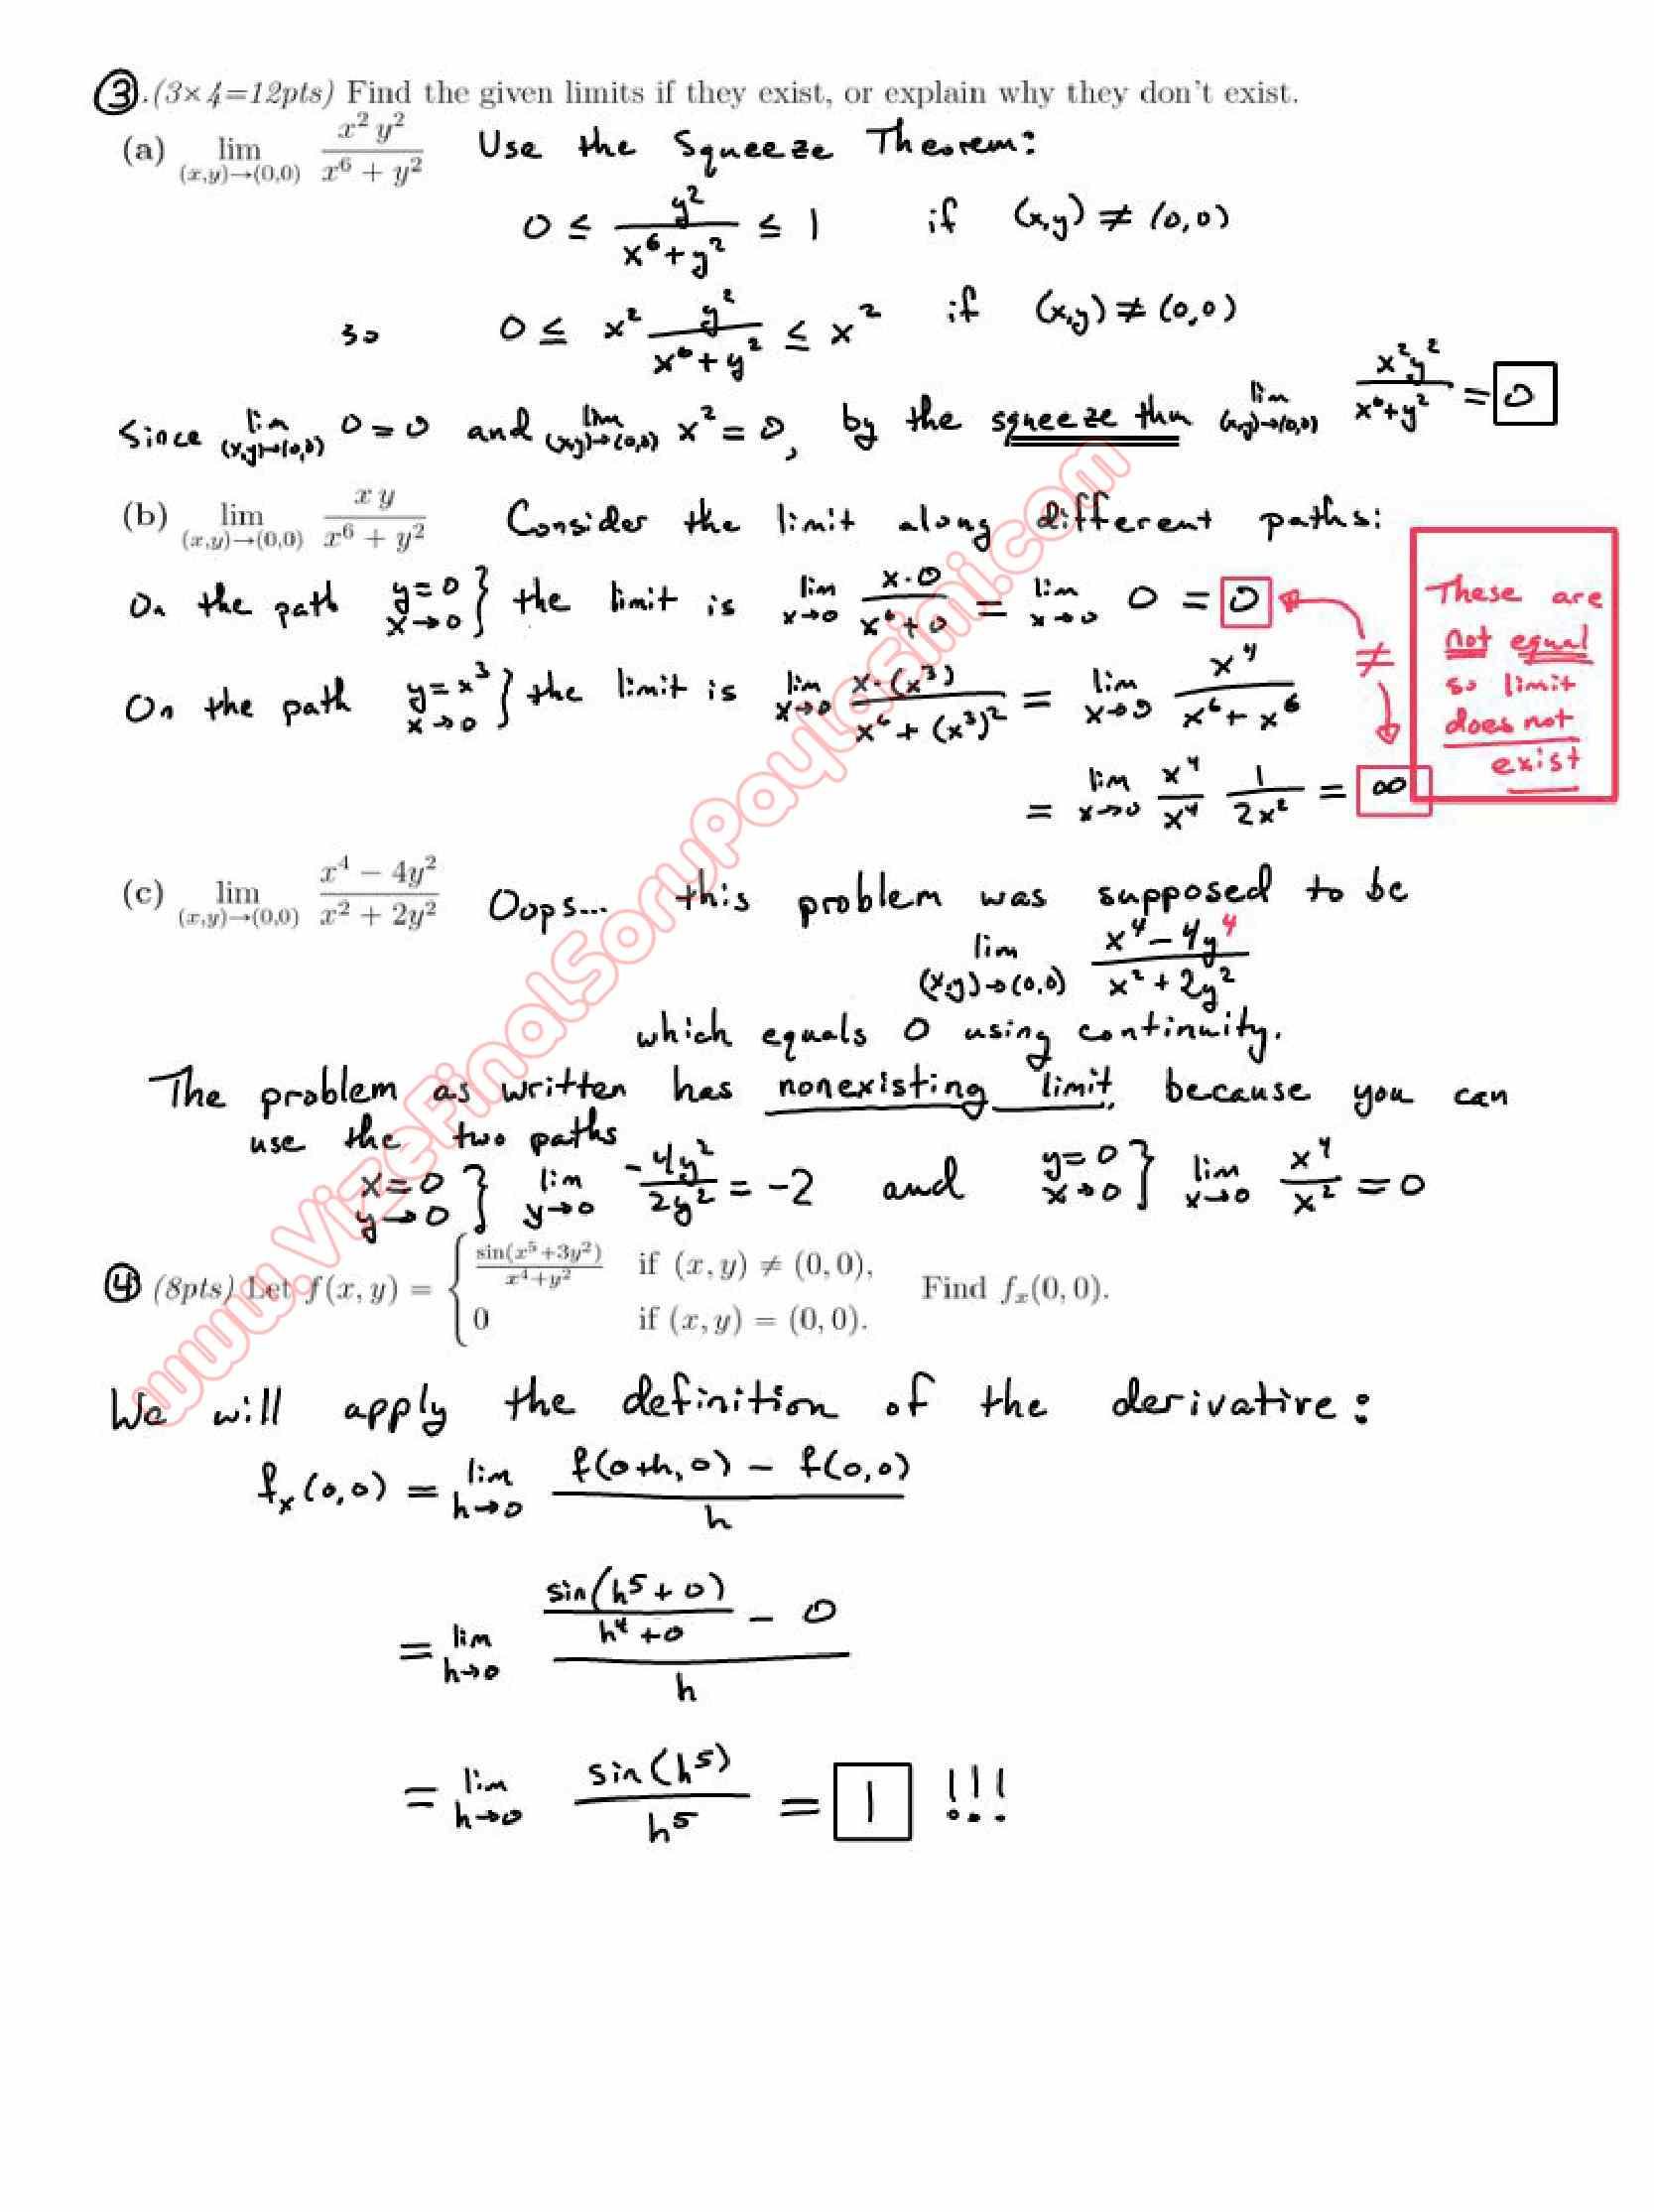 ③.(3×4=12pts) Find the given limits if they exist, or explain why they don't exist.
(a) lim (x,y)→(0,0) x² y² / x⁶ + y² Use the Squeeze Theorem:
0 ≤ y² / x⁶+y² ≤ 1 if (x,y) ≠ (0,0)
so 0 ≤ x² y² / x⁶+y² ≤ x² if (x,y) ≠ (0,0)
Since lim (x,y)→(0,0) 0=0 and lim (x,y)→(0,0) x²=0, by the squeeze thm lim (x,y)→(0,0) x²y² / x⁶+y² = 0
(b) lim (x,y)→(0,0) x y / x⁶ + y² Consider the limit along different paths:
On the path y=0 x→0 } the limit is lim x→0 x·0 / x⁶+0 = lim x→0 0 = 0
On the path y=x³ x→0 } the limit is lim x→0 x·(x³) / x⁶+(x³)² = lim x→0 x⁴ / x⁶+x⁶
= lim x→0 x⁴/x⁴ 1/2x² = ∞
≠
These are
not equal
so limit
does not
exist
(c) lim (x,y)→(0,0) x⁴ − 4y² / x² + 2y² Oops... this problem was supposed to be
lim (x,y)→(0,0) x⁴−4y⁴ / x²+2y²
which equals 0 using continuity.
The problem as written has nonexisting limit, because you can
use the two paths
x=0 y→0 } lim y→0 −4y²/2y² = −2 and y=0 x→0 } lim x→0 x⁴/x² = 0
④ (8pts) Let f(x, y) = { sin(x⁵+3y²) / x⁴+y² if (x, y) ≠ (0, 0), Find fₓ(0, 0).
0 if (x, y) = (0, 0).
We will apply the definition of the derivative:
fₓ(0,0) = lim h→0 f(0+h,0) − f(0,0) / h
= lim h→0 sin(h⁵+0) / h⁴+0 − 0 / h
= lim h→0 sin(h⁵) / h⁵ = 1 !!!
www.VizeFinalSoruPaylasimi.com